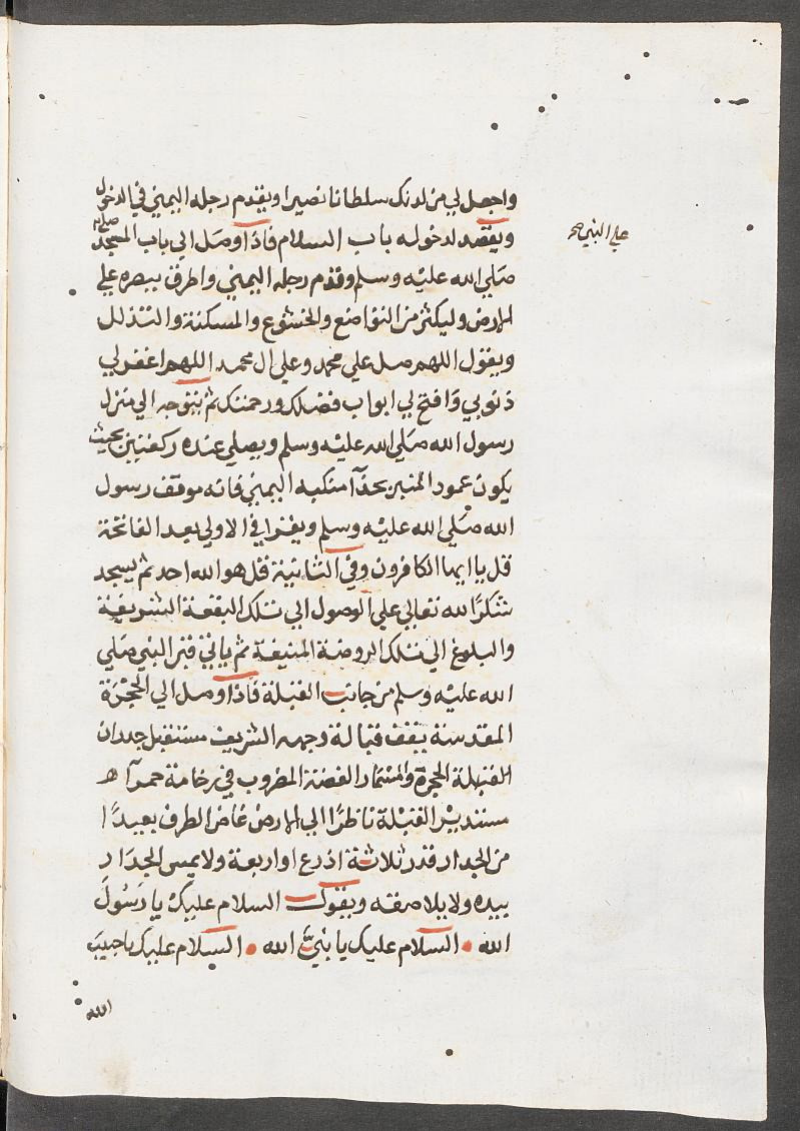 واجعل لي من لدنك سلطانا نصيرا ويقدم رجله اليمني في الدخول
ويقصد لدخوله باب السلام فاذا وصل الي باب المسجد صلي
علي النبي صح
صَلي الله عليه وسلم وقدم رجله اليمني واطرق ببصره علي
الارض وليكثر من التواضع والخشوع والمسكنة والتذلل
ويقول اللهم صل علي محمد وعلي ال محمد اللهم اغفر لي
ذنوبي وَافتح لي ابواب فضلك ورحمتك ثم يتوجه الي منزل
رسول الله صَلي الله عليه وسلم ويصلي عنده ركعتين بحيث
يكون عمود المنبر بحذآ منكبه اليمني فانه موقف رسول
الله صَلي الله عليه وسلم ويقرا في الاولي بعد الفاتحة
قل يا ايها الكافرون وفي الثانية قل هو الله احد ثم يسجد
شكرًا لله تعالي علي الوصول الي تلك البقعة الشريفة
والبلوغ الي تلك الروضة المنيفة ثم ياتي قبر النبي صَلي
الله عليه وسلم من جانب القبلة فاذا وصل الي الحجْرَة
المقدسة يقف قبالة وجهه الشريف مستقبل جدران
القبلة الحجرة والمسمار الفضة المضروب في رخامة حمرآ
مستدبرْ القبْلة ناظرًا الي الارض غاض الطرف بعيدًا
من الجدار قدر ثلاثة اذرع او اربعة ولا يمس الجدَار
بيده ولا يلاصقه ويقول السلام عليكْ يا رَسُولَ
الله • السلام عليك يا نبيَّ الله • السلام عليك يا حبيبَ
الله